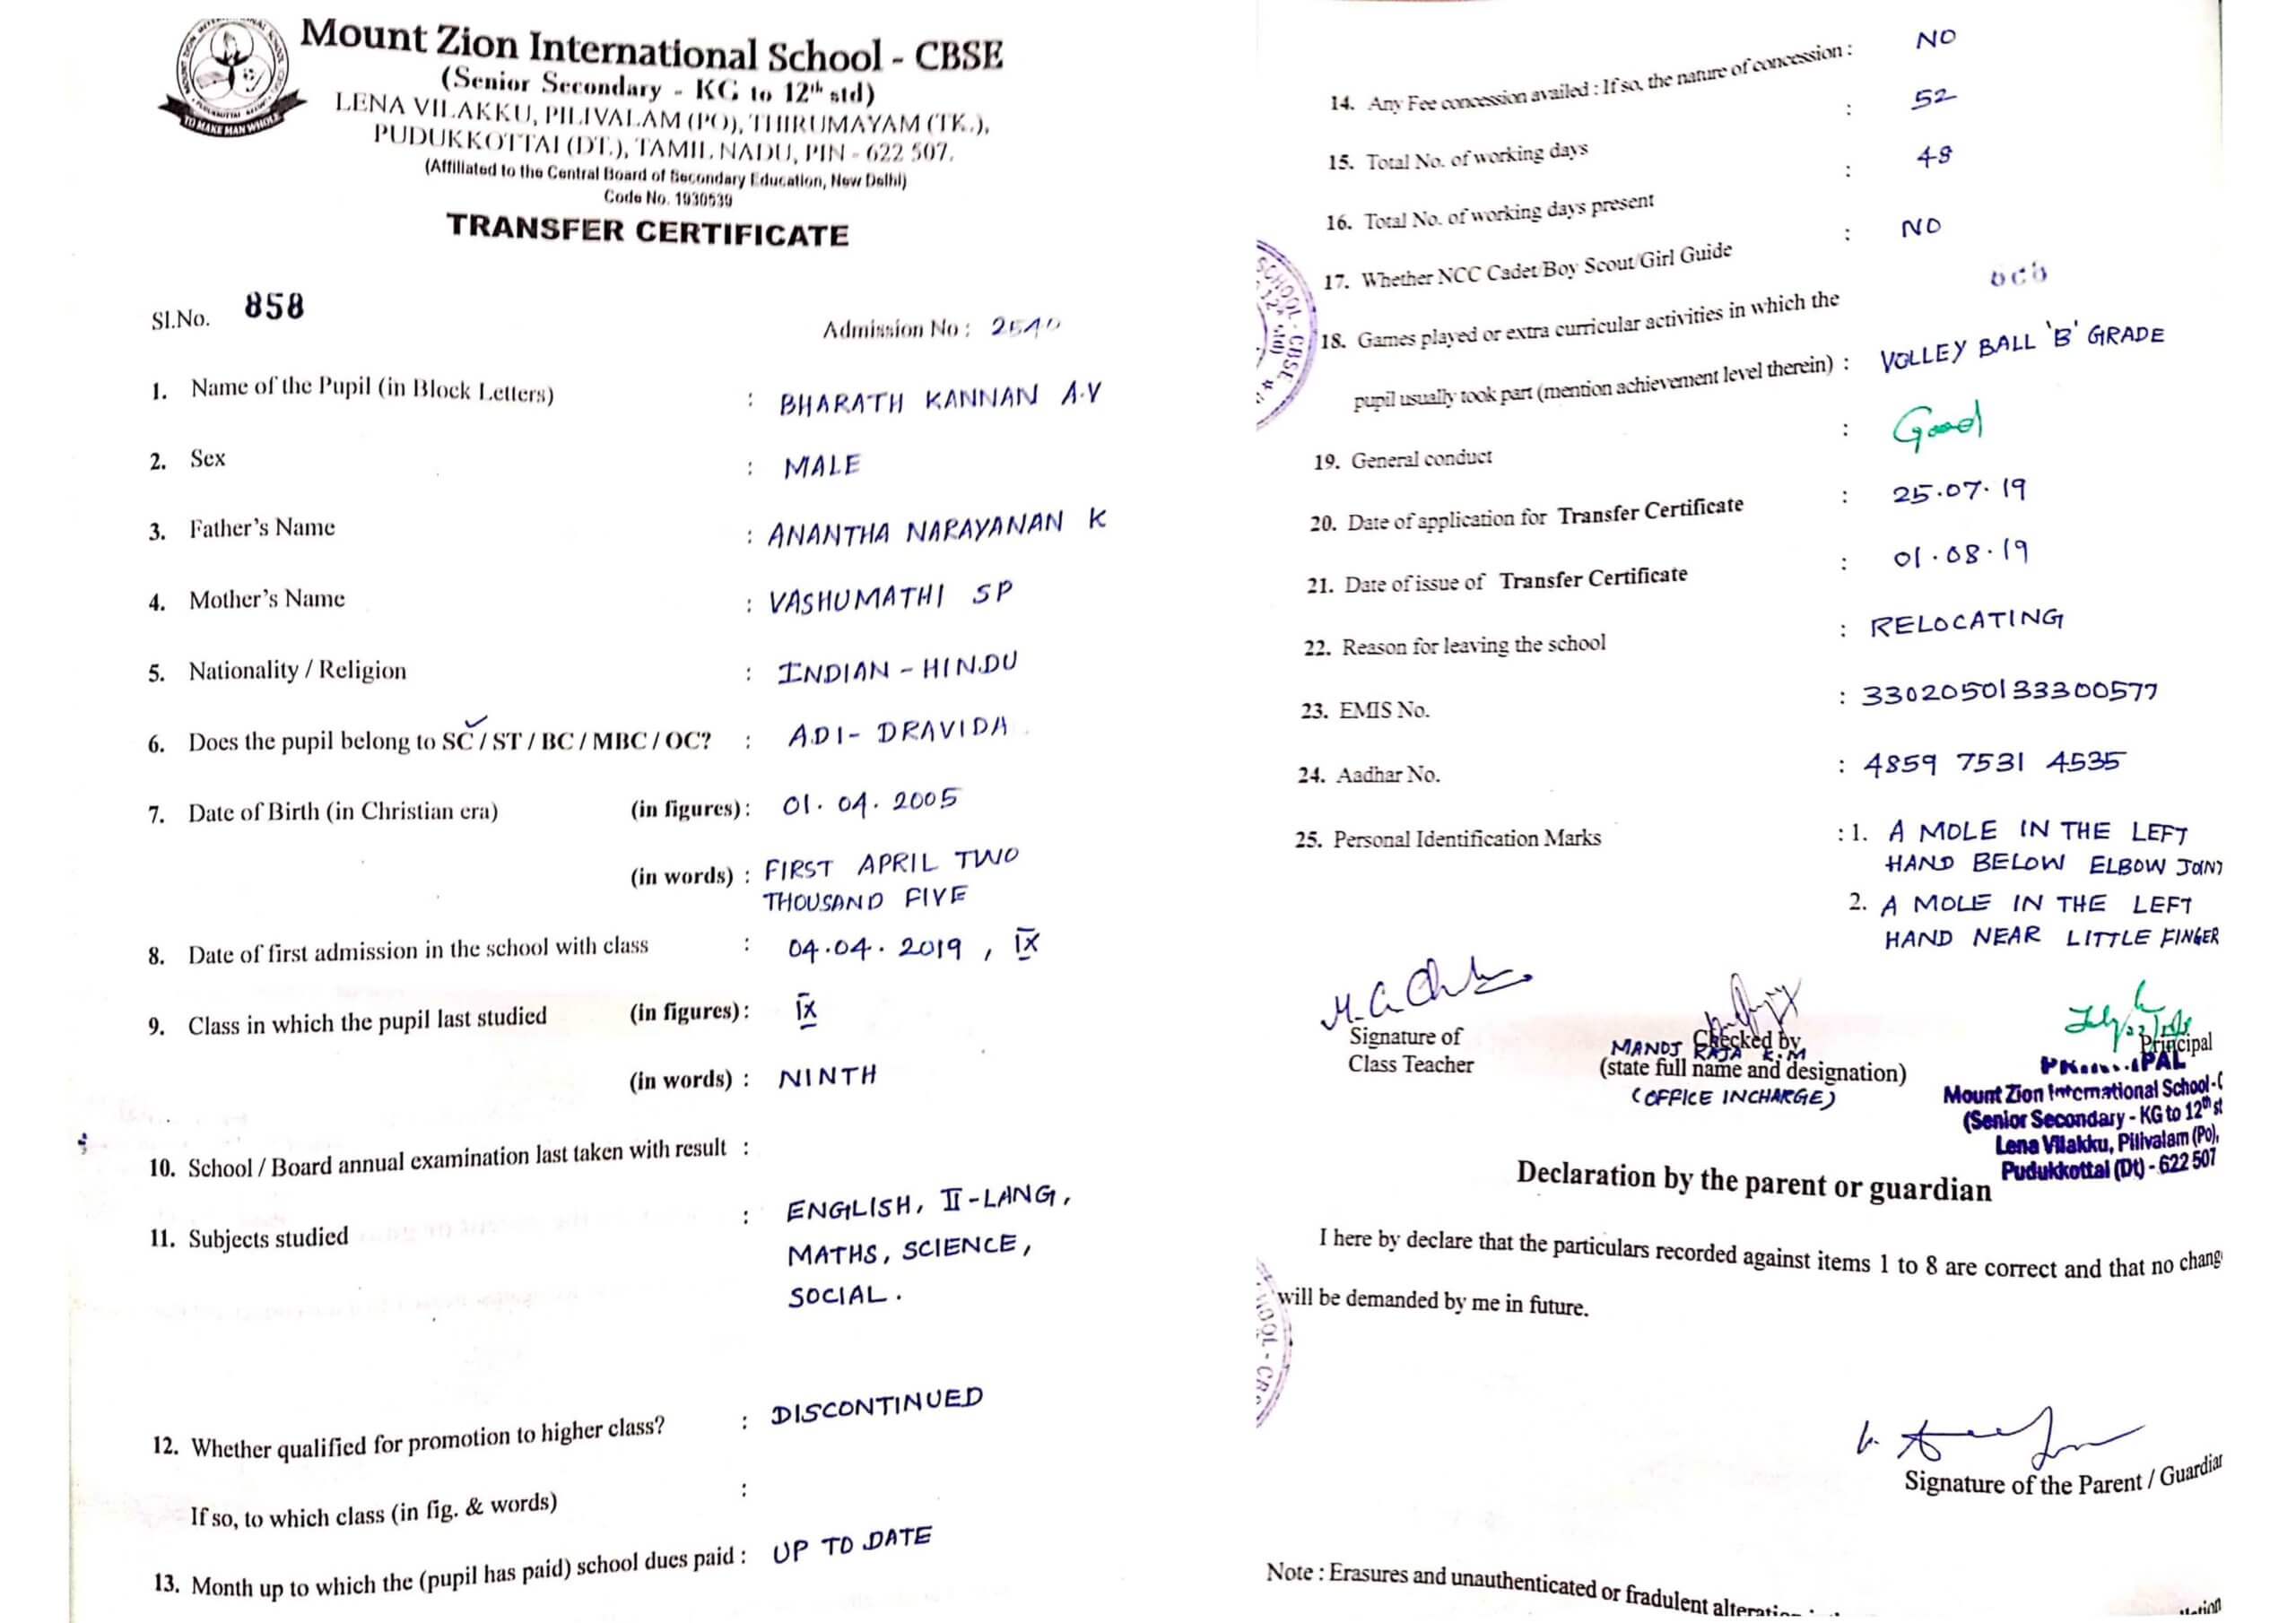 Mount Zion International School - CBSE
(Senior Secondary - KG to 12th std)
LENA VILAKKU, PILIVALAM (PO), THIRUMAYAM (TK.),
PUDUKKOTTAI (DT.), TAMIL NADU, PIN - 622 507.
(Affiliated to the Central Board of Secondary Education, New Delhi)
Code No. 1930539
TRANSFER CERTIFICATE
TO MAKE MAN WHOLE
Sl.No. 858
Admission No : 2540
1. Name of the Pupil (in Block Letters) : BHARATH KANNAN A.V
2. Sex : MALE
3. Father's Name : ANANTHA NARAYANAN K
4. Mother's Name : VASHUMATHI SP
5. Nationality / Religion : INDIAN - HINDU
6. Does the pupil belong to SC / ST / BC / MBC / OC? : ADI - DRAVIDA
7. Date of Birth (in Christian era) (in figures) : 01. 04. 2005
(in words) : FIRST APRIL TWO
THOUSAND FIVE
8. Date of first admission in the school with class : 04.04. 2019 , IX
9. Class in which the pupil last studied (in figures) : IX
(in words) : NINTH
10. School / Board annual examination last taken with result :
11. Subjects studied : ENGLISH, II-LANG,
MATHS, SCIENCE,
SOCIAL.
12. Whether qualified for promotion to higher class? : DISCONTINUED
If so, to which class (in fig. & words) :
13. Month up to which the (pupil has paid) school dues paid : UP TO DATE
14. Any Fee concession availed : If so, the nature of concession : NO
15. Total No. of working days : 52
16. Total No. of working days present : 48
17. Whether NCC Cadet/Boy Scout/Girl Guide : NO
18. Games played or extra curricular activities in which the
pupil usually took part (mention achievement level therein) : VOLLEY BALL 'B' GRADE
19. General conduct : Good
20. Date of application for Transfer Certificate : 25.07.19
21. Date of issue of Transfer Certificate : 01.08.19
22. Reason for leaving the school : RELOCATING
23. EMIS No. : 3302050133300577
24. Aadhar No. : 4859 7531 4535
25. Personal Identification Marks : 1. A MOLE IN THE LEFT
HAND BELOW ELBOW JOINT
2. A MOLE IN THE LEFT
HAND NEAR LITTLE FINGER
SCHOOL - CBSE
Signature of
Class Teacher
Checked by
MANOJ RAJA K.M
(state full name and designation)
(OFFICE INCHARGE)
Principal
Mount Zion International School-
(Senior Secondary - KG to 12th st
Lena Vilakku, Pilivalam (Po),
Pudukkottai (Dt) - 622 507
Declaration by the parent or guardian
I here by declare that the particulars recorded against items 1 to 8 are correct and that no chang
will be demanded by me in future.
Signature of the Parent / Guardian
Note : Erasures and unauthenticated or fradulent